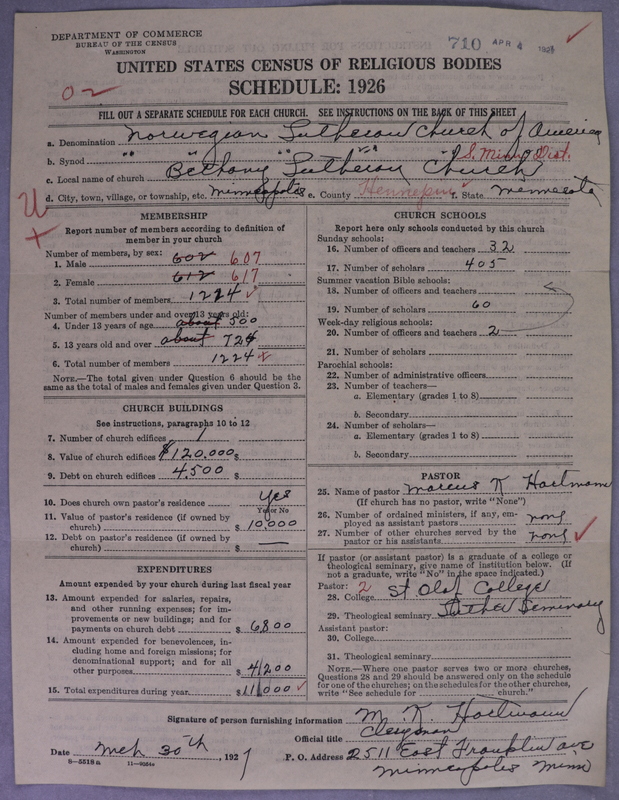 DEPARTMENT OF COMMERCE
BUREAU OF THE CENSUS
WASHINGTON
710 APR 4 192
UNITED STATES CENSUS OF RELIGIOUS BODIES
SCHEDULE: 1926
02
FILL OUT A SEPARATE SCHEDULE FOR EACH CHURCH. SEE INSTRUCTIONS ON THE BACK OF THIS SHEET
a. Denomination Norwegian Lutheran Church of America
b. Synod " " " " S. Minn. Dist.
c. Local name of church Bethany Lutheran Church
d. City, town, village, or township, etc. Minneapolis e. County Hennepin f. State Minnesota
U
+
MEMBERSHIP
Report number of members according to definition of member in your church
Number of members, by sex:
1. Male 602 607
2. Female 612 617
3. Total number of members 1224
Number of members under and over 13 years old:
4. Under 13 years of age about 500
5. 13 years old and over about 724
6. Total number of members 1224
NOTE.—The total given under Question 6 should be the same as the total of males and females given under Question 3.
CHURCH BUILDINGS
See instructions, paragraphs 10 to 12
7. Number of church edifices 1
8. Value of church edifices $120,000 $
9. Debt on church edifices 4,500 $
10. Does church own pastor's residence yes
Yes or No
11. Value of pastor's residence (if owned by church) $ 10,000
12. Debt on pastor's residence (if owned by church) $ —
EXPENDITURES
Amount expended by your church during last fiscal year
13. Amount expended for salaries, repairs, and other running expenses; for improvements or new buildings; and for payments on church debt $ 6800
14. Amount expended for benevolences, including home and foreign missions; for denominational support; and for all other purposes $ 4200
15. Total expenditures during year $ 11000
CHURCH SCHOOLS
Report here only schools conducted by this church
Sunday schools:
16. Number of officers and teachers 32
17. Number of scholars 405
Summer vacation Bible schools:
18. Number of officers and teachers
19. Number of scholars 60
Week-day religious schools:
20. Number of officers and teachers 2
21. Number of scholars
Parochial schools:
22. Number of administrative officers
23. Number of teachers—
a. Elementary (grades 1 to 8)
b. Secondary
24. Number of scholars—
a. Elementary (grades 1 to 8)
b. Secondary
PASTOR
25. Name of pastor Marcus K Hartmann
(If church has no pastor, write "None")
26. Number of ordained ministers, if any, employed as assistant pastors none
27. Number of other churches served by the pastor or his assistants none
If pastor (or assistant pastor) is a graduate of a college or theological seminary, give name of institution below. (If not a graduate, write "No" in the space indicated.)
Pastor: 2
28. College St Olaf College
29. Theological seminary Luther Seminary
Assistant pastor:
30. College
31. Theological seminary
NOTE.—Where one pastor serves two or more churches, Questions 28 and 29 should be answered only on the schedule for one of the churches; on the schedules for the other churches, write "See schedule for church."
Signature of person furnishing information M. K. Hartmann
Official title Clergyman
Date Mch 30th, 1927 P. O. Address 2511 East Franklin ave
Minneapolis Minn
8—5518a 11—9554a